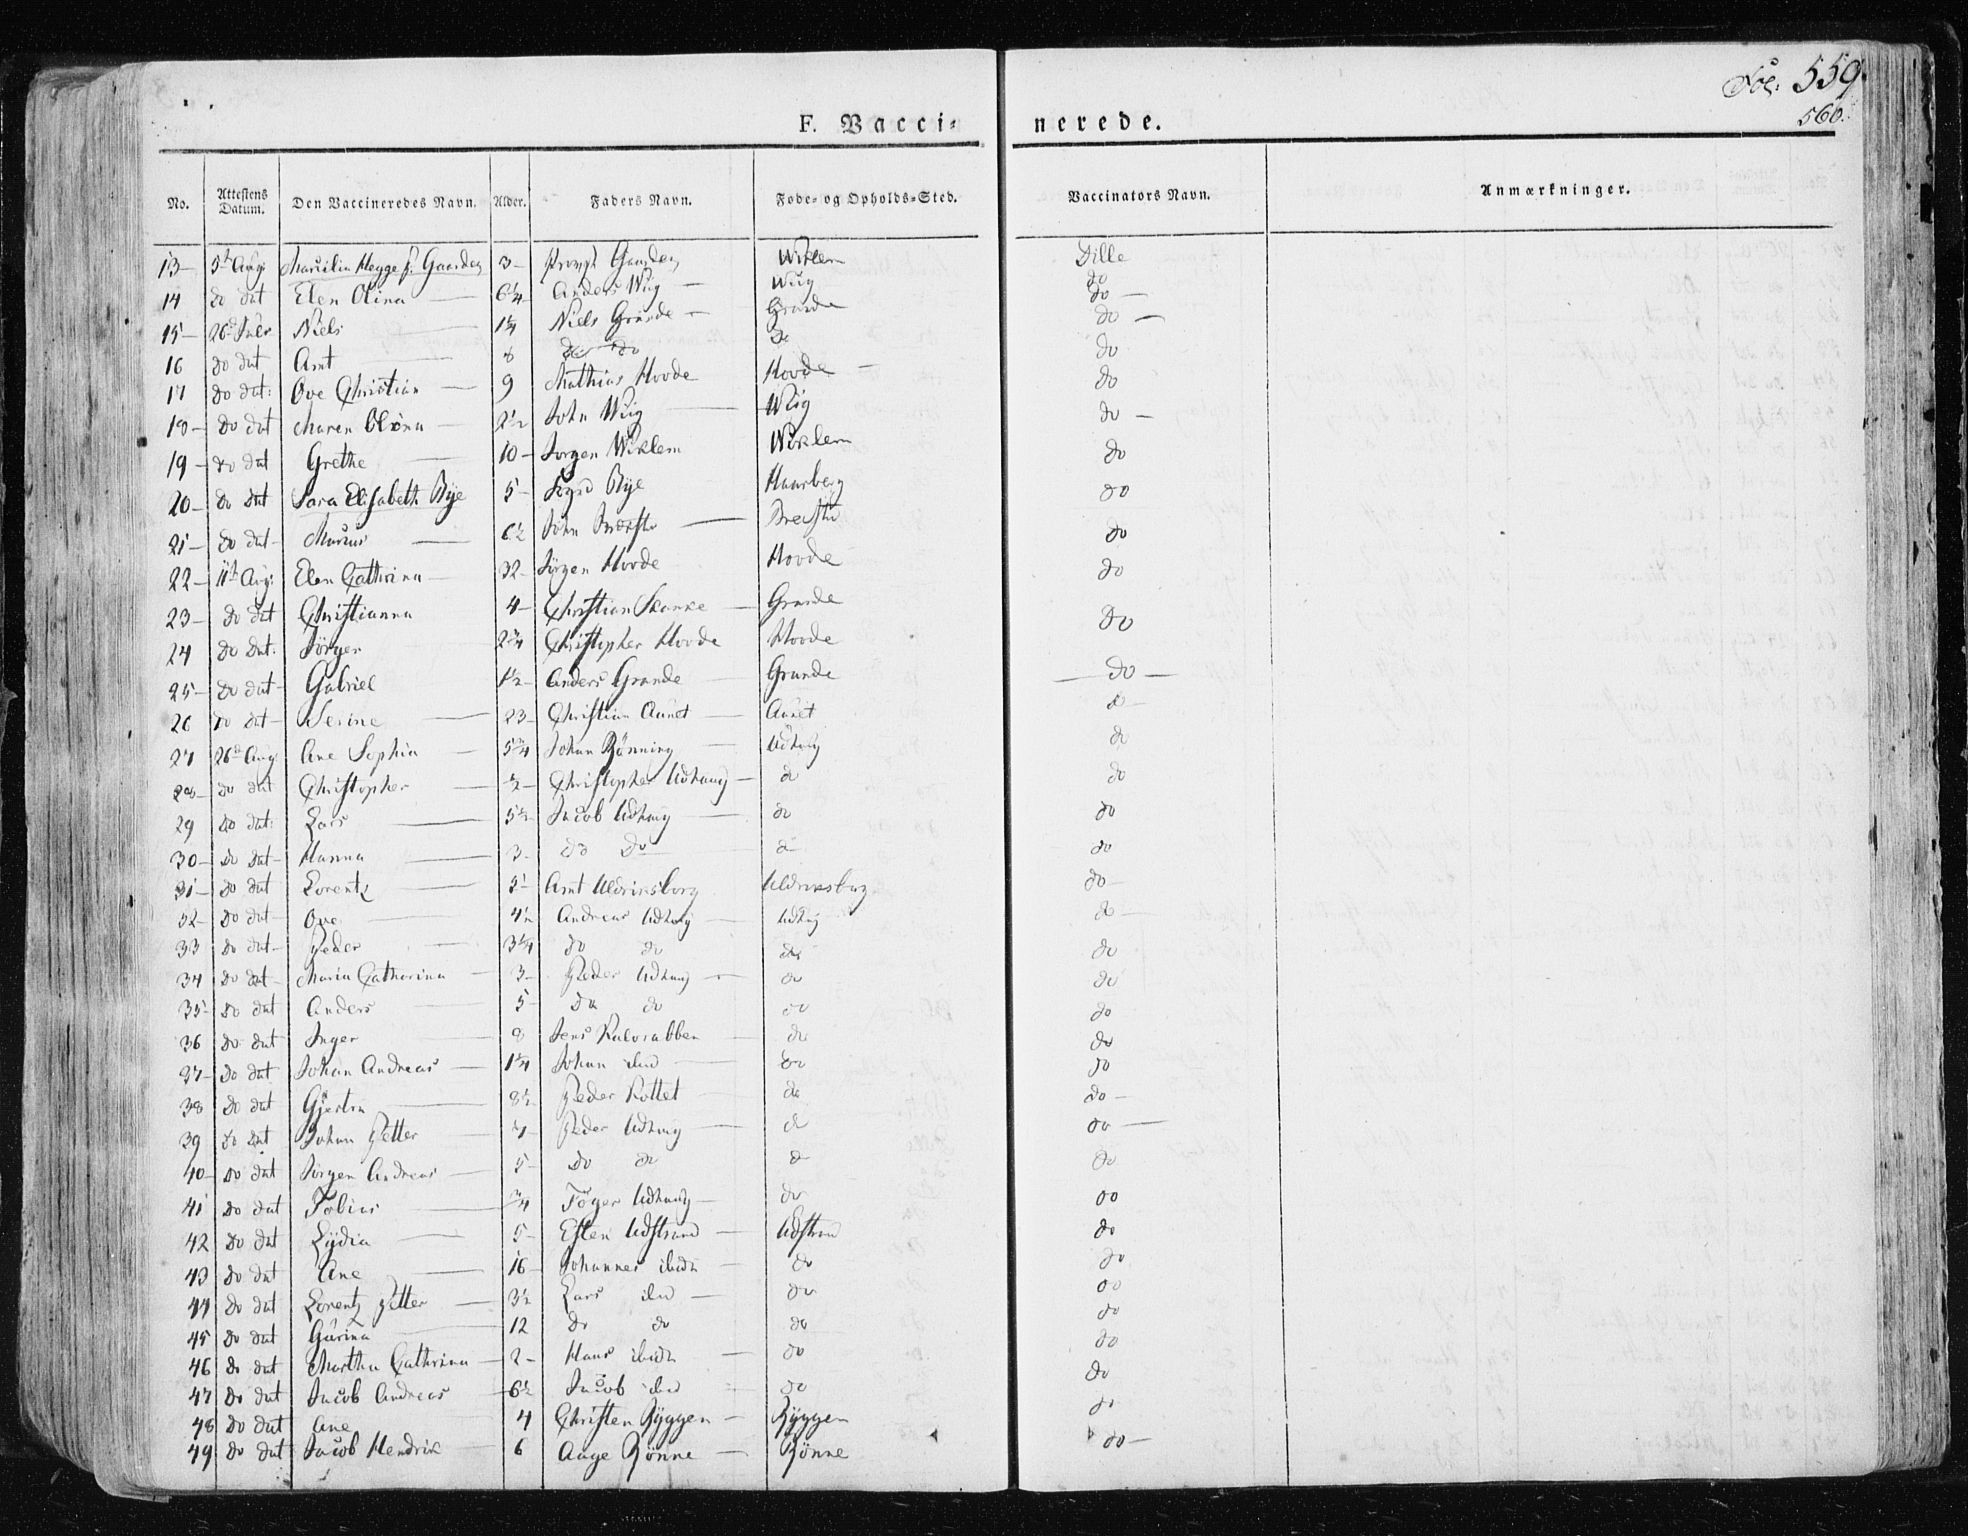 Fol. 559
560.
F. Vacci= nerede.
No. Attestens Datum. Den Vaccineredes Navn. Alder. Faders Navn. Føde= og Opholds=Sted. Vaccinators Navn. Anmærkninger.
13 5t Aug: Hegge 3 Wiklem Dille
14 do dat Elen Olina 6¼ Anders Wiig Wiig do
15 26d Niels 1¼ Niels Grande Grande do
16 do dat Arnt 8 do do do do
17 do dat: Ove Christian 9 Mathias Hovde Hovde do
18 do dat Maren Olina 2½ John Wiig Wiig do
19 do dat Grethe 10 Jørgen Wiklem Wiklem do
20 do dat Sara Elisabeth Bye 5 Bye Haarberg do
21 do dat 6½ John do
22 11t Aug: Elen Cathrina 32 Jørgen Hovde Hovde do
23 do dat Christianna 4 Christian Skanke Grande do
24 do dat: Jørgen 2¾ Christopher Hovde Hovde
25 do dat Gabriel 1½ Anders Grande Grande do
26 do dat Serine 23 Christian Aunet Aunet do
27 26d Aug: Ane Sophia 5¾ Johan Rønning Udhaug do
28 do dat Christopher ½ Christopher Udhaug do do
29 do dat: Lars 5½ Jacob Udhaug do do
30 do dat Hanna 3 do do do do
31 do dat Lorentz 5 Arnt Uldriksborg Uldriksborg do
32 do dat Ove 4½ Andreas Udhaug Udhaug do
33 do dat Peder 3¼ do do do do
34 do dat Maria Catharina 3 Peder Udhaug do do
35 do dat Anders 5 do do do do
36 do dat Inger 8 Jens do do
37 do dat Johan Andreas 1¼ Johan ibid do do
38 do dat Gjertru 8½ Peder Kottet do do
39 do dat Johan Petter 7 Peder Udhaug do do
40 do dat Jørgen Andreas 5 do do do do
41 do dat Tobias ¾ Tøger Udhaug do do
42 do dat Lydia 5 Esten Udstrand Udstrand do
43 do dat Ane 16 Johannes ibidm do do
44 do dat Lorentz Petter 3½ Lars ibid do do
45 do dat Gurina 12 do do do do
46 do dat Martha Cathrina 2 Hans ibidm do do
47 do dat Jacob Andreas 6½ Jacob ibid do do
48 do dat Ane 4 Christen Ryggen Ryggen do
49 do dat Jacob Hendrik 6 Aage Rønne Rønne do